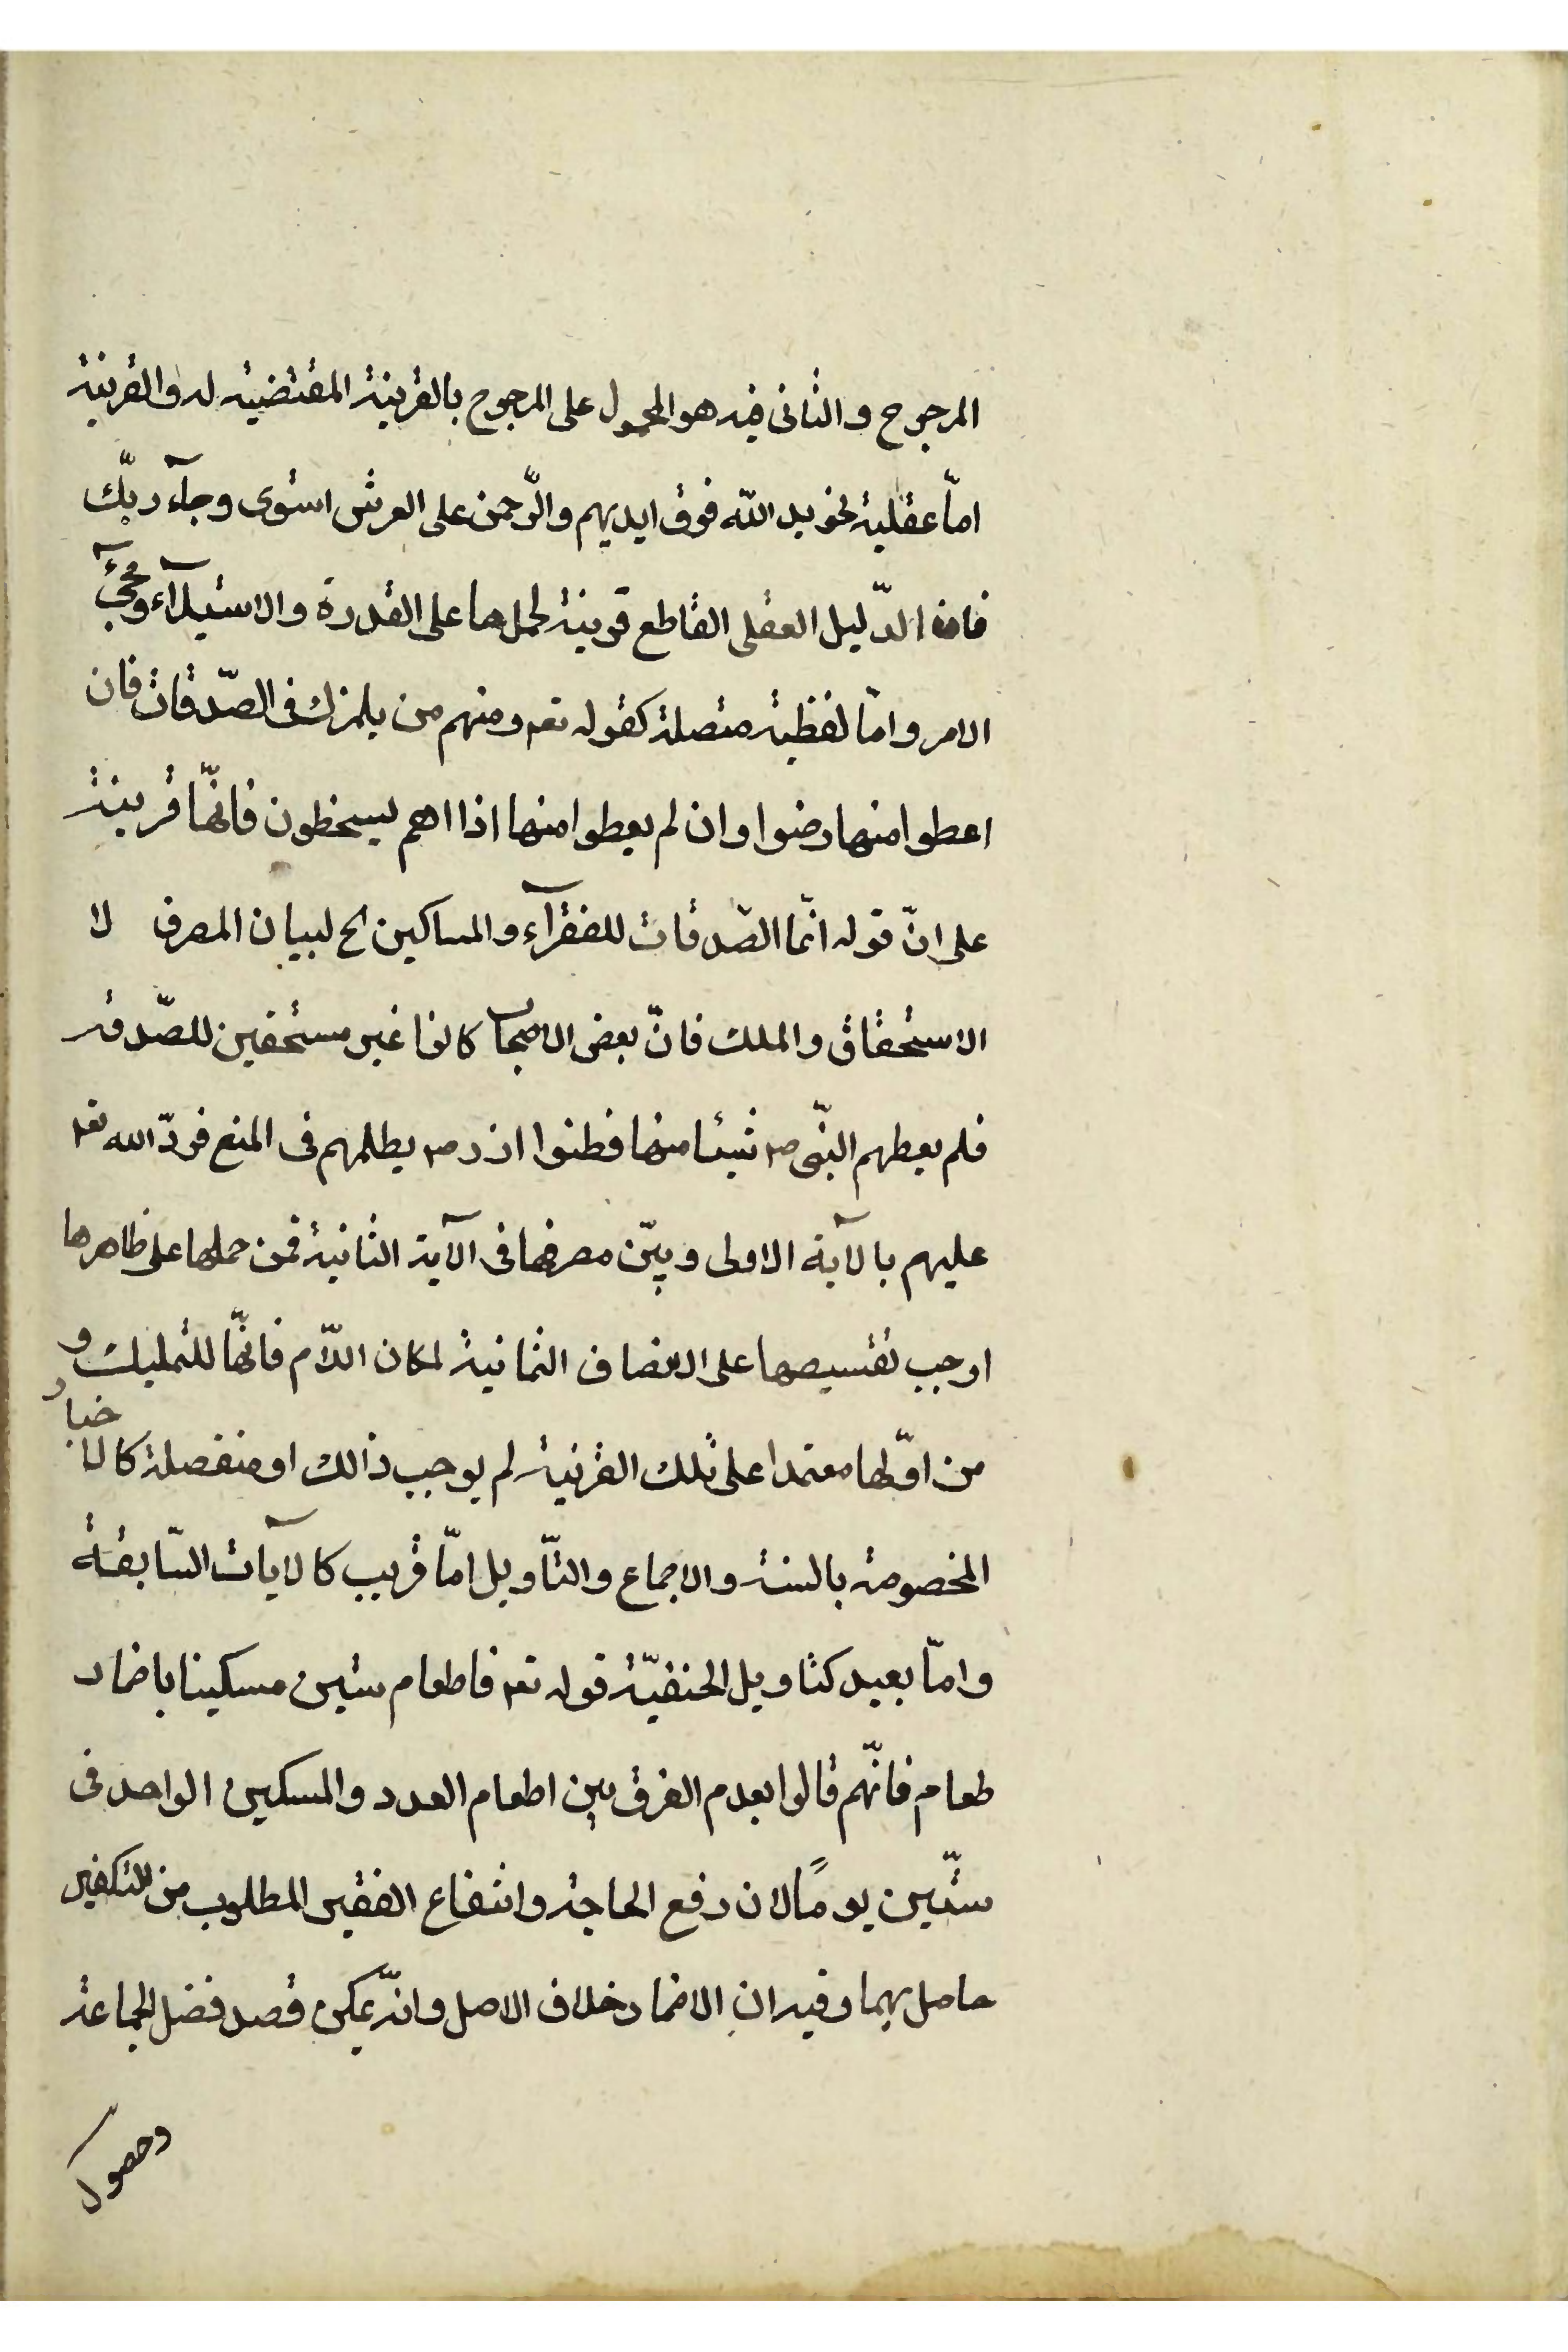 المرجوح والثانى فيه هو المحمول على المرجوح بالقرينة المقتضيه له والقرينة
امّا عقلية نحو يد اللّه فوق ايديهم والرّحمن على العرش استوى وجآء ربّك
فان الدّليل العقلى القاطع قرينة لحملها على القدرة والاستيلآء ومجئ
الامر وامّا لفظية متصلة كقوله تعم ومنهم من يلمزك فى الصّدقات فان
اعطوا منها رضوا وان لم يعطوا منها اذا اهم يسخطون فانّها قرينة
على انّ قوله انّما الصّدقات للفقرآء والمساكين الخ لبيان المصرف لا
الاستحقاق والملك فانّ بعض الاصحاب كانوا غير مستحقين للصّدقه
فلم يعطهم النبّى صم شيئا منها فظنوا انه صم يظلمهم فى المنع فردّ الله تعم
عليهم بالآية الاولى وبيّن مصرفها فى الآية الثانية فمن حملها على ظاهرها
اوجب تقسيمها على الاصناف الثمانية لمكان اللّام فانّها للتمليك و
من اوّلها معتمدا على تلك القرنية لم يوجب ذالك او منفصلة كالاخبار
المخصوصة بالسنة والاجماع والتّاويل امّا قريب كالآيات السّابقة
وامّا بعيد كتاويل الحنفيّة قوله تعم فاطعام ستين مسكينا باضمار
طعام فانّهم قالوا بعدم الفرق بين اطعام العدد والمسكين الواحد فى
ستّين يومًا لان رفع الحاجة وانتفاع الفقير المطلوب من التكفير
حاصل بهما وفيه ان الاضمار خلاف الاصل وانّه يمكن قصد فضل الجماعة
وحصول